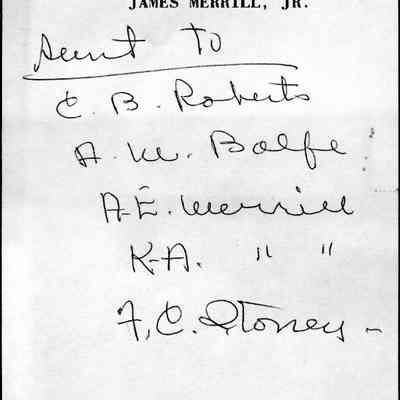 JAMES MERRILL, JR.
Sent To
C. B. Roberts
A. M. Balfe
A-E. Merrill
K-A. " "
F. C. Stoney -